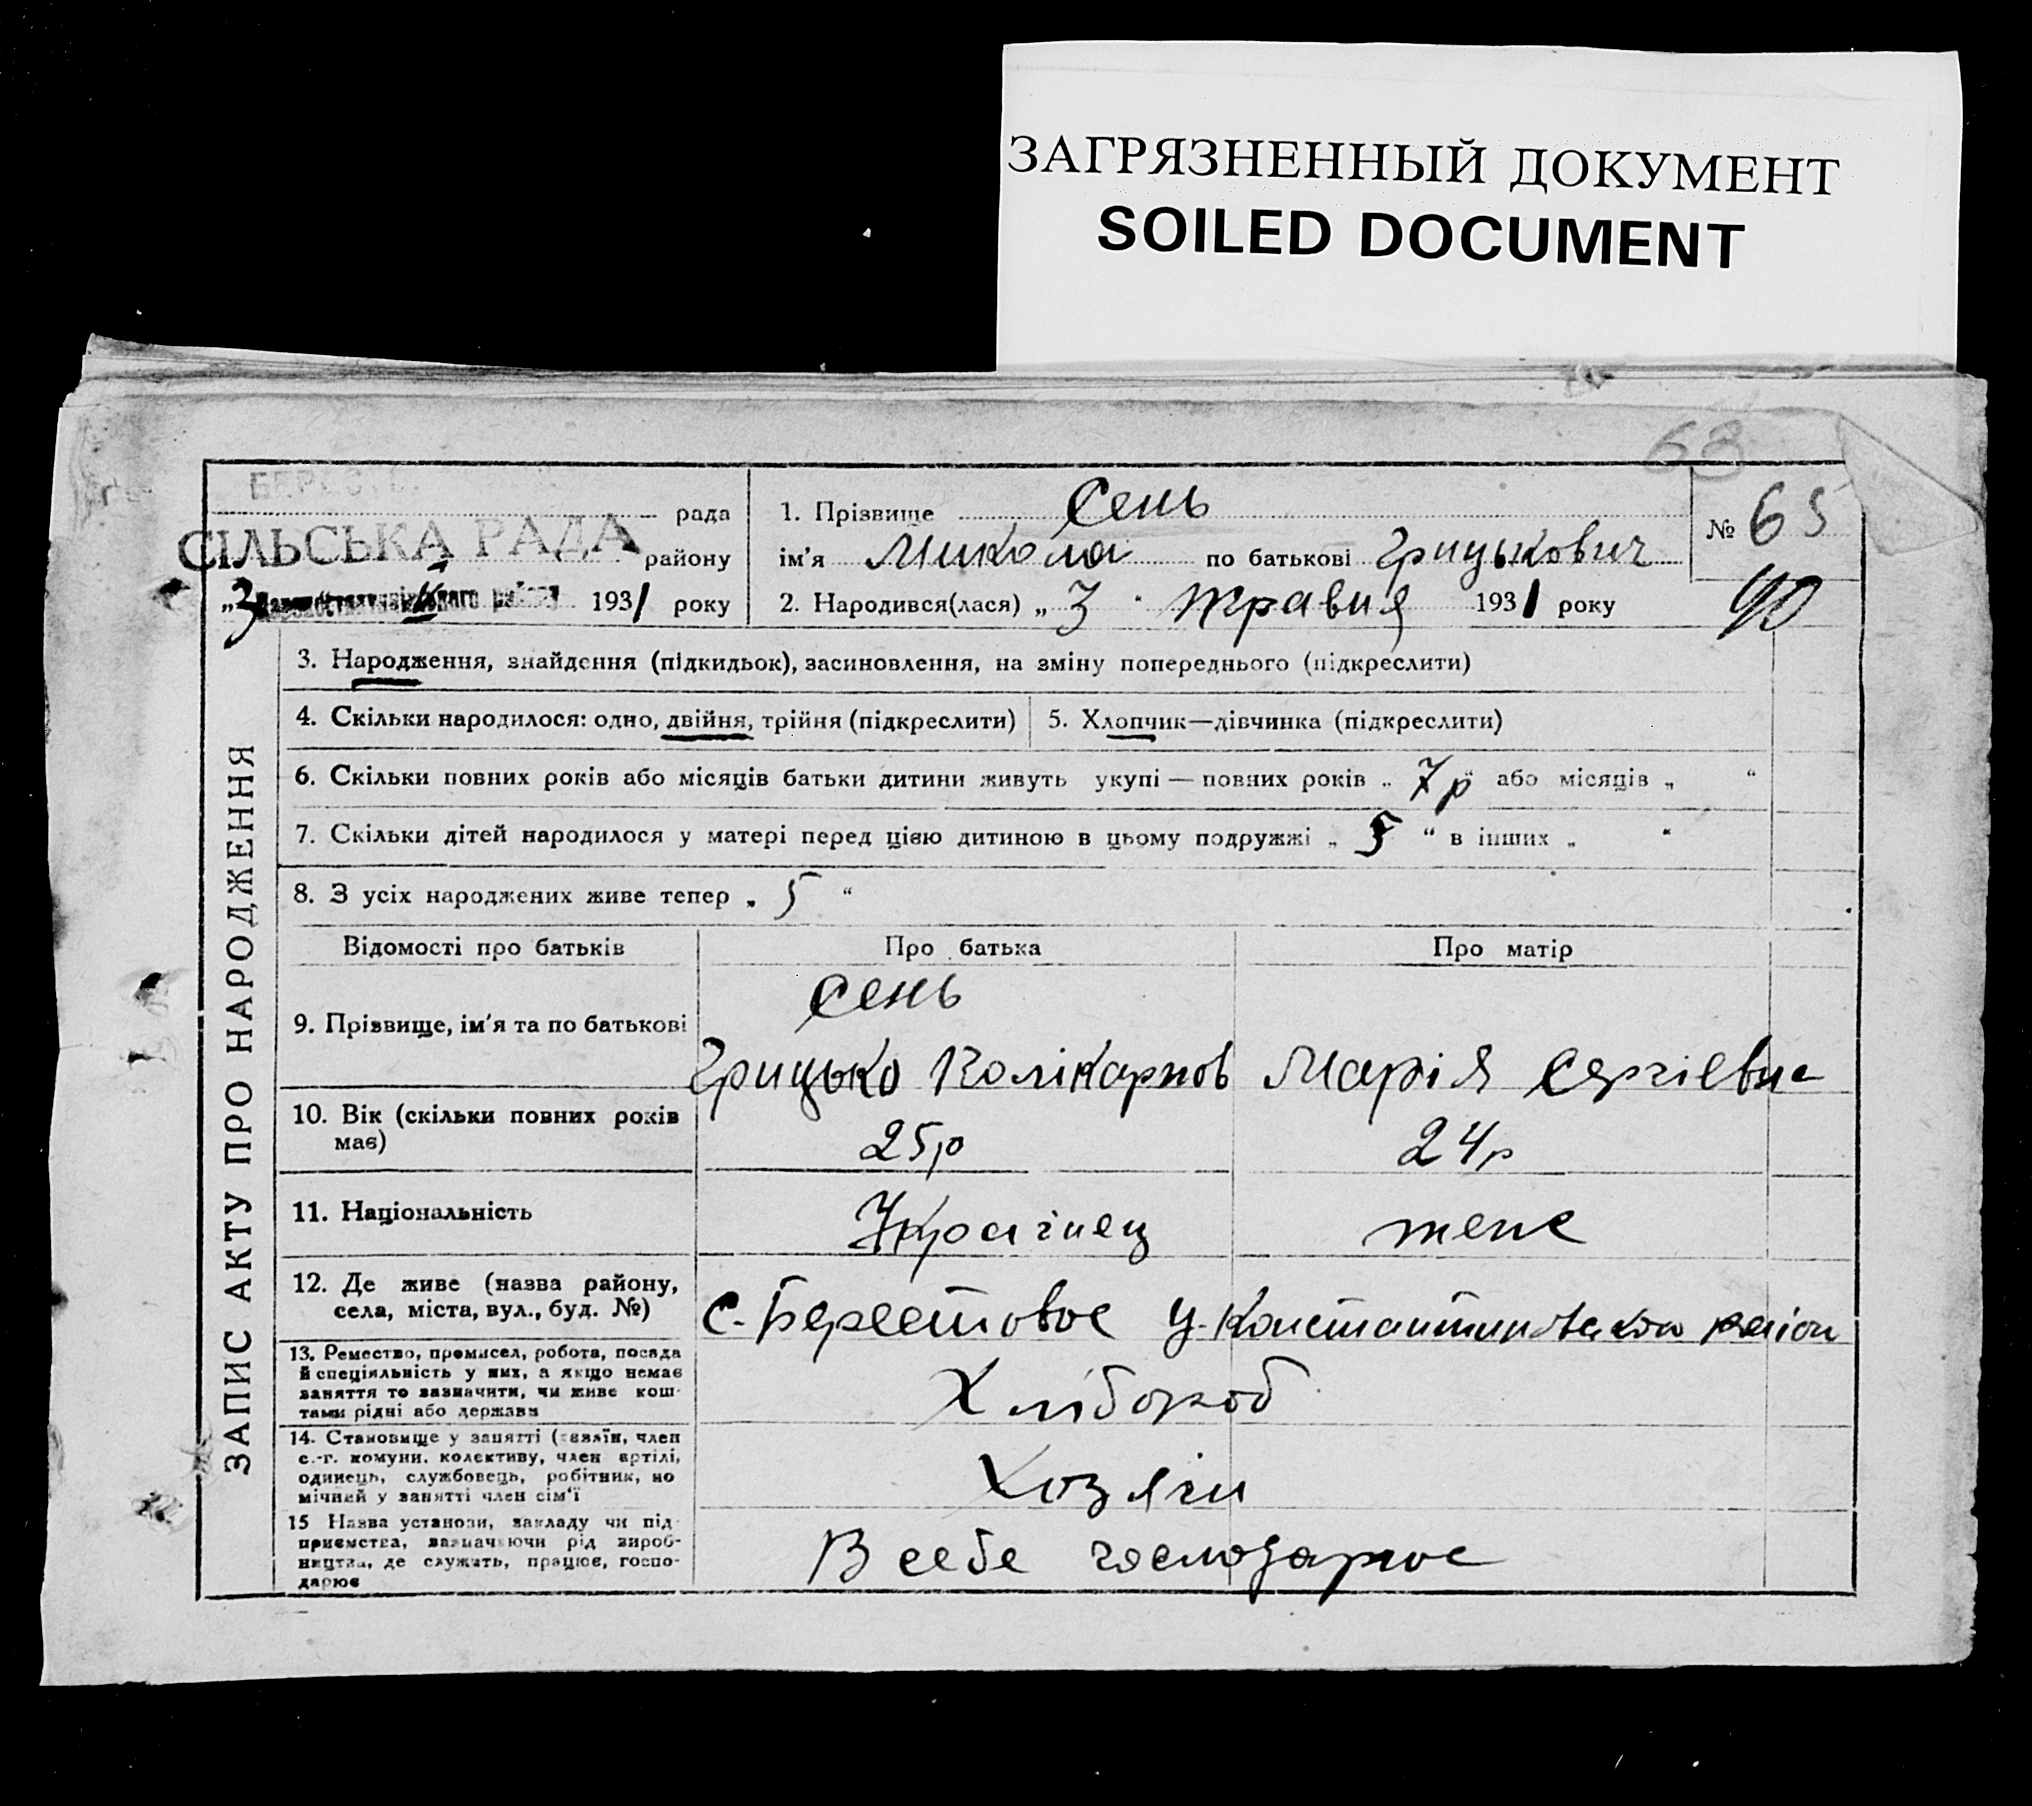 ЗАГРЯЗНЕННЫЙ ДОКУМЕНТ
SOILED DOCUMENT
68
рада
СІЛЬСЬКА РАДА
району
„3 1931 року
1. Прізвище Сень
ім'я Микола по батькові Грицькович
№ 65
2. Народився(лася) „3 травня 1931 року
90
ЗАПИС АКТУ ПРО НАРОДЖЕННЯ
3. Народження, знайдення (підкидьок), засиновлення, на зміну попереднього (підкреслити)
4. Скільки народилося: одно, двійня, трійня (підкреслити)
5. Хлопчик—дівчинка (підкреслити)
6. Скільки повних років або місяців батьки дитини живуть укупі — повних років „ 7р “ або місяців „ “
7. Скільки дітей народилося у матері перед цією дитиною в цьому подружжі „ 5 “ в інших „ “
8. З усіх народжених живе тепер „ 5 “
Відомості про батьків Про батька Про матір
9. Прізвище, ім'я та по батькові
Сень
Грицько Полікарпов Марія Сергієвна
10. Вік (скільки повних років
має)
25р 24р
11. Національність Українец теж
12. Де живе (назва району,
села, міста, вул., буд. №)
с. Берестовое
13. Ремество, промисел, робота, посада
й спеціяльність у них, а якщо немає
заняття то зазначити, чи живе кош-
тами рідні або держави
Хлібороб
14. Становище у занятті (хазяїн, член
с.-г. комуни, колективу, член артілі,
одинець, службовець, робітник, по
мічний у занятті член сім'ї
Хозяїн
15 Назва установи, закладу чи під-
приємства, зазначаючи рід вироб-
ництва, де служить, працює, госпо-
дарює
В себе